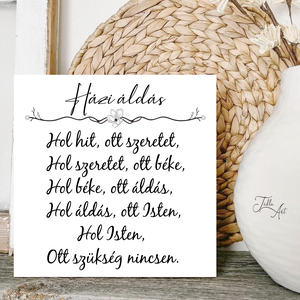 Házi áldás
Hol hit, ott szeretet,
Hol szeretet, ott béke,
Hol béke, ott áldás,
Hol áldás, ott Isten,
Hol Isten,
Ott szükség nincsen.
Art